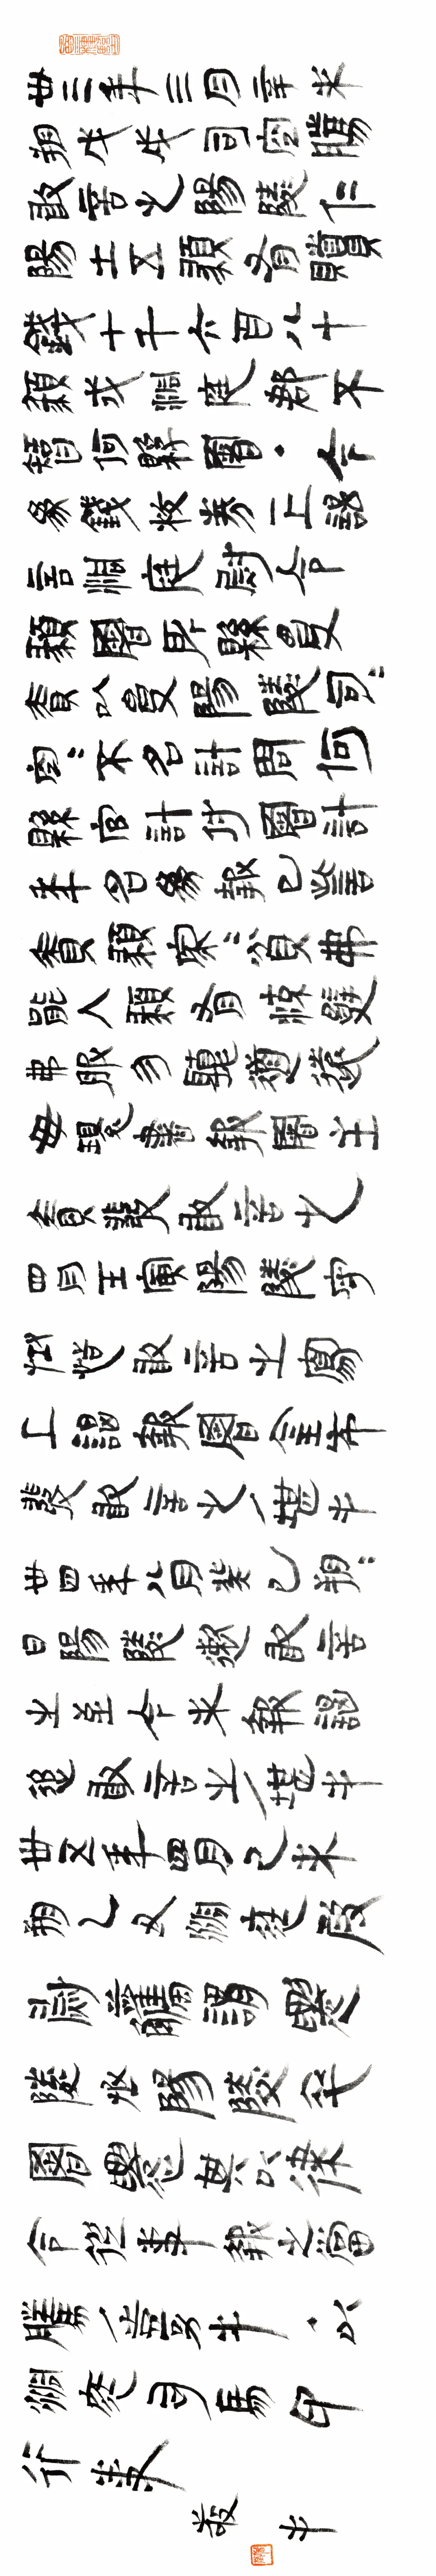 卅三年三月辛未
朔戊戌司空騰
敢言之陽陵仁
陽士五頯有贖
錢七千六百八十
頯戍洞庭郡不
智何縣署·今
為錢校券一上謁
言洞庭尉令
頯署所縣受
責以受陽陵司=
空=不名計問何
縣官計付署計
年名為報已訾
責頯家=貧弗
能入頯有辭
弗服勿聽道遠
毋環書報署主
責發敢言之
四月壬寅陽陵守
丞恬敢言之寫
上謁報署金布
發敢言之/堪手
卅四年八月癸巳朔=
日陽陵遫敢言
之至今未報謁
追敢言之/堪手
卅五年四月己未
朔乙丑洞庭叚
尉觿謂遷
陵丞陽陵卒
署遷陵其以律
令從事報之當
騰/嘉手·以
洞庭司馬印
行事
敬手